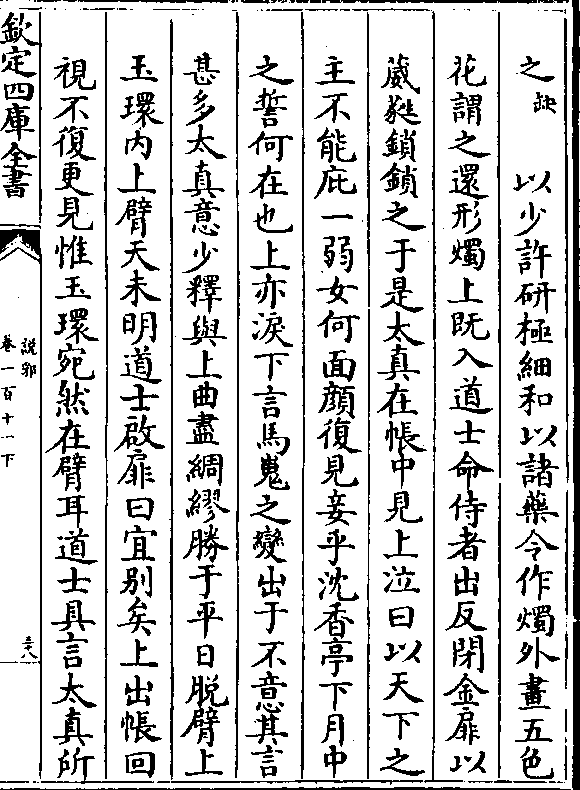 之缺　以少許研極細和以諸藥令作燭外畫五色
花謂之還形燭上既入道士命侍者出反閉金扉以
葳蕤鎖鎖之于是太真在帳中見上泣曰以天下之
主不能庇一弱女何面顔復見妾乎沈香亭下月中
之誓何在也上亦淚下言馬嵬之變出于不意其言
甚多太真意少釋與上曲盡綢繆勝于平日脱臂上
玉環内上臂天未明道士啟扉曰宜别矣上出帳回
視不復更見惟玉環宛然在臂耳道士具言太真所
欽定四庫全書
説郛
卷一百十一下
三八